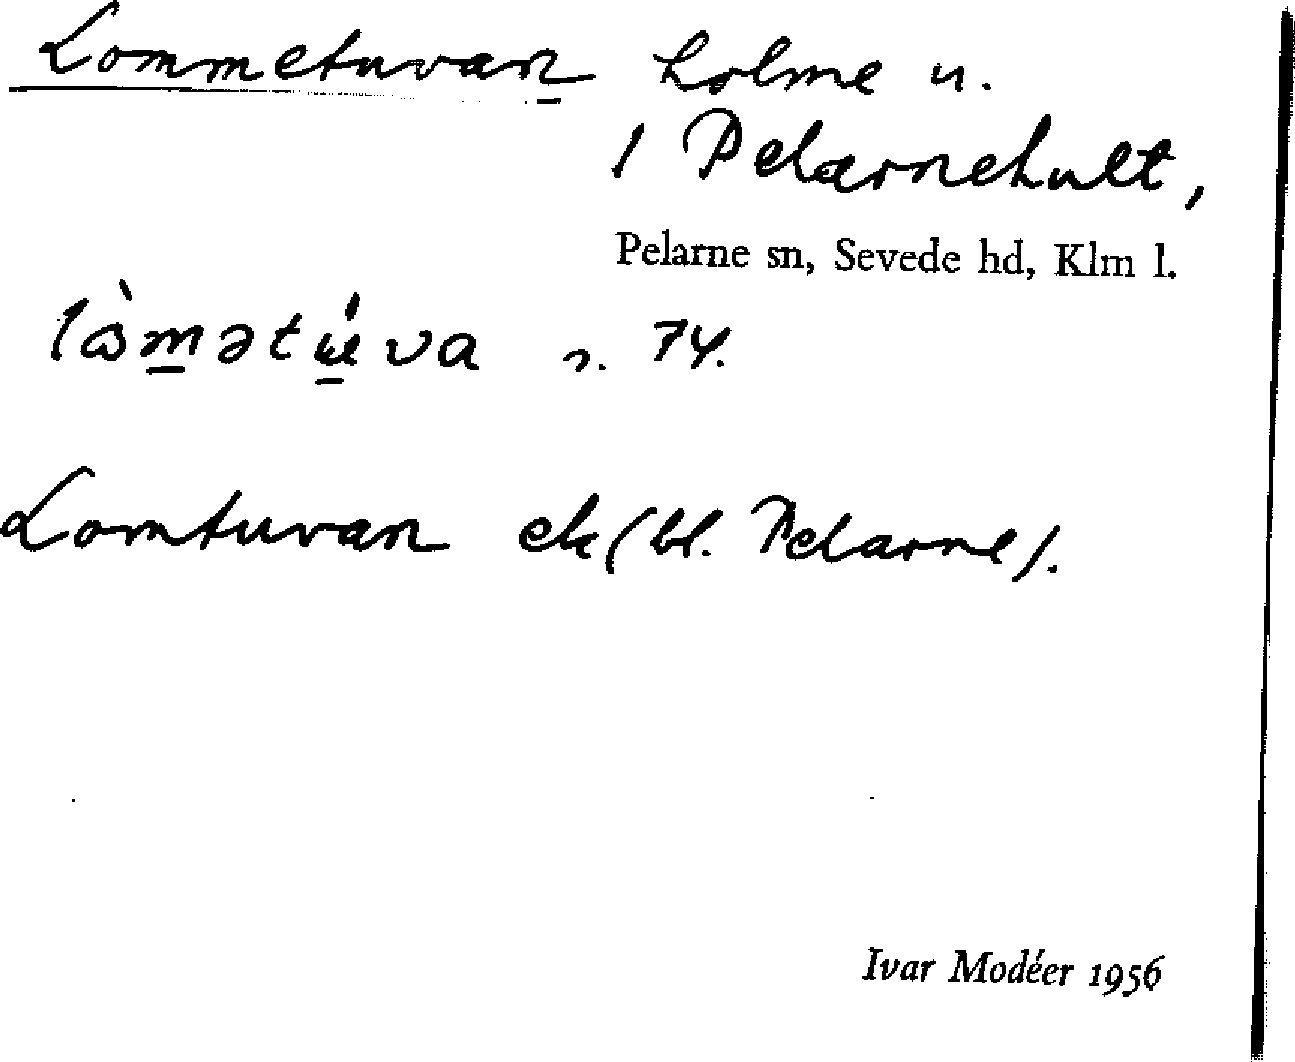 Lommetuvan holme n.
1 Pelarnehult,
Pelarne sn, Sevede hd, Klm l.
n. 74.
Lomtuvan ek (bl. Pelarne).
Ivar Modéer 1956